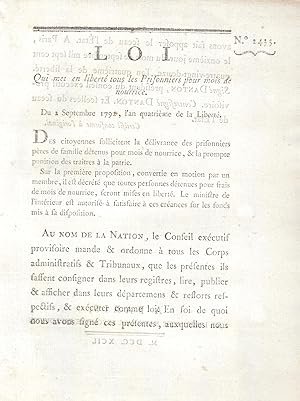 LOI
N.º 2435.
Qui met en liberté tous les Prisonniers pour mois de
nourrice.
Du 2 Septembre 1792, l'an quatrième de la Liberté.
DES citoyennes sollicitent la délivrance des prisonniers
pères de famille détenus pour mois de nourrice, & la prompte
punition des traîtres à la patrie.
Sur la première proposition, convertie en motion par un
membre, il est décrété que toutes personnes détenues pour frais
de mois de nourrice, seront mises en liberté. Le ministre de
l'intérieur est autorisé à satisfaire à ces créances sur les fonds
mis à sa disposition.
AU NOM DE LA NATION, le Conseil exécutif
provisoire mande & ordonne à tous les Corps
administratifs & Tribunaux, que les présentes ils
fassent consigner dans leurs registres, lire, publier
& afficher dans leurs départemens & ressorts res-
pectifs, & exécuter comme loi. En foi de quoi
nous avons signé ces présentes, auxquelles nous